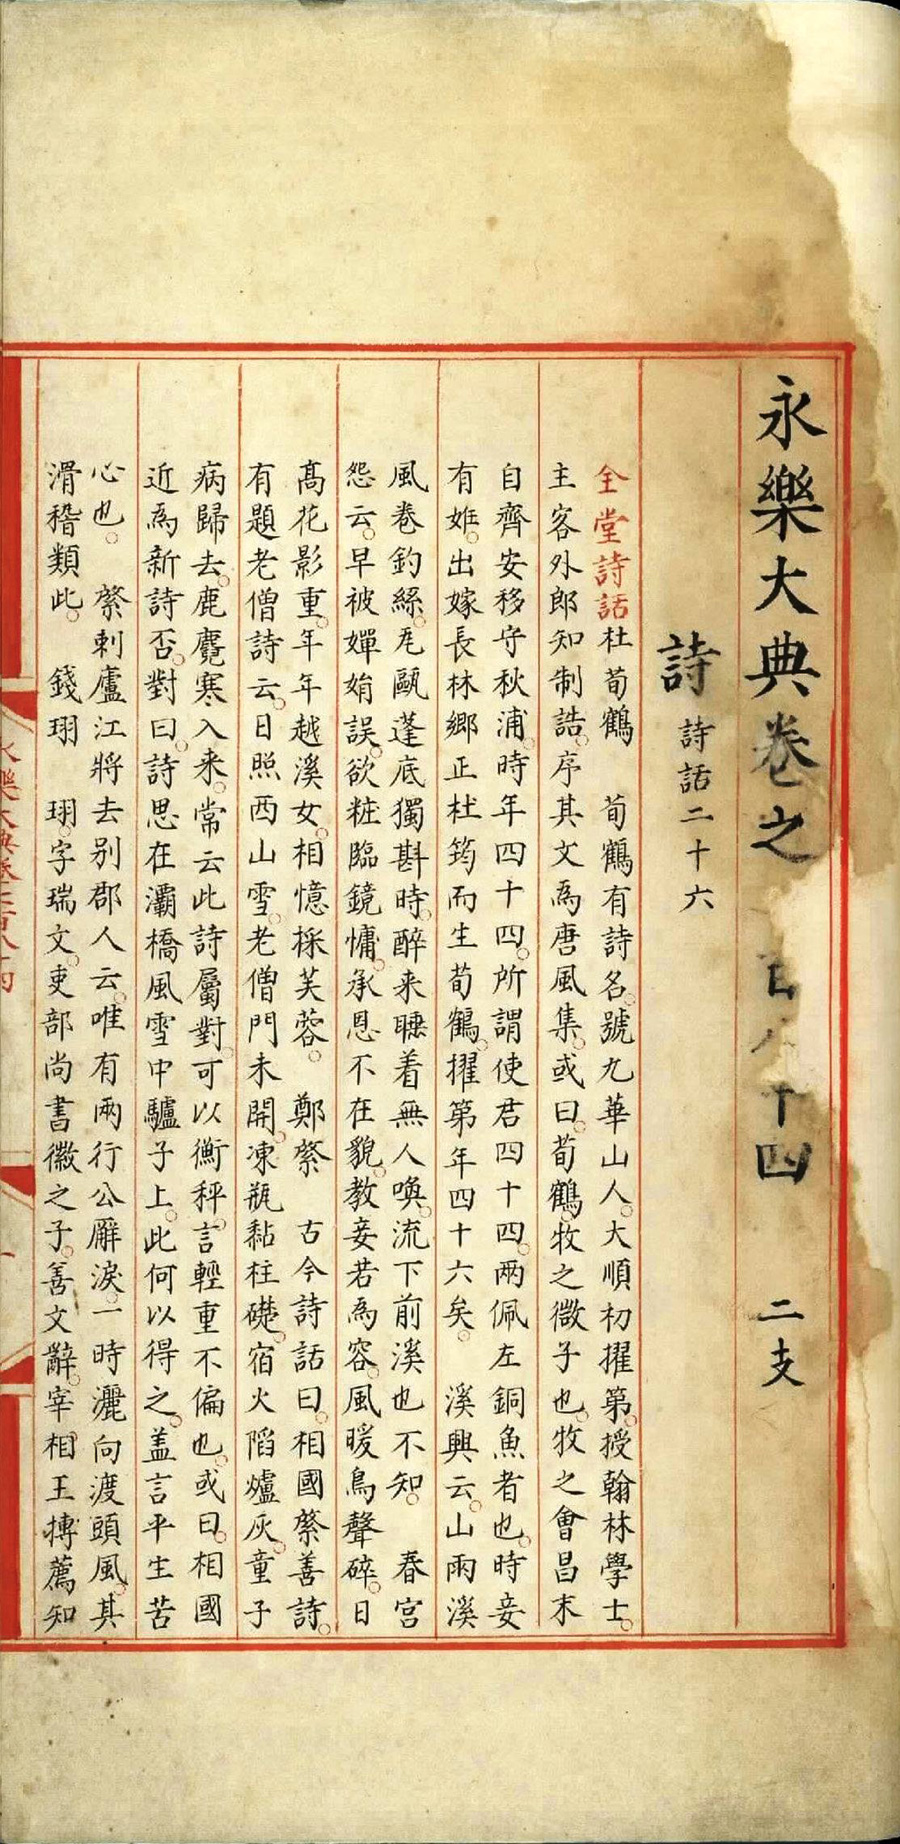 永樂大典卷之 百八十四 二支
詩 詩話二十六
全堂詩話杜荀鶴 荀鶴有詩名。號九華山人。大順初擢第。授翰林學士。
主客外郎知制誥。序其文為唐風集。或曰。荀鶴。牧之微子也。牧之會昌末
自齊安移守秋浦。時年四十四。所謂使君四十四。兩佩左銅魚者也。時妾
有姙。出嫁長林鄉正杜筠而生荀鶴。擢第年四十六矣。 溪興云。山雨溪
風卷釣絲。瓦甌蓬底獨斟時。醉来睡着無人喚。流下前溪也不知。 春宮
怨云。早被嬋娟誤。欲粧臨鏡慵。承恩不在貌。教妾若為容。風暖鳥聲碎。日
高花影重。年年越溪女。相憶採芙蓉。 鄭綮 古今詩話曰。相國綮善詩。
有題老僧詩云。日照西山雪。老僧門未開。凍瓶黏柱礎。宿火陷爐灰。童子
病歸去。鹿麑寒入来。常云此詩屬對。可以衡秤。言輕重不偏也。或曰。相國
近為新詩否。對曰。詩思在灞橋風雪中驢子上。此何以得之。蓋言平生苦
心也。 綮刺廬江將去别郡人云。唯有兩行公廨淚。一時灑向渡頭風。其
滑稽類此。 錢珝 珝。字瑞文。吏部尚書徽之子。善文辭。宰相王摶薦知